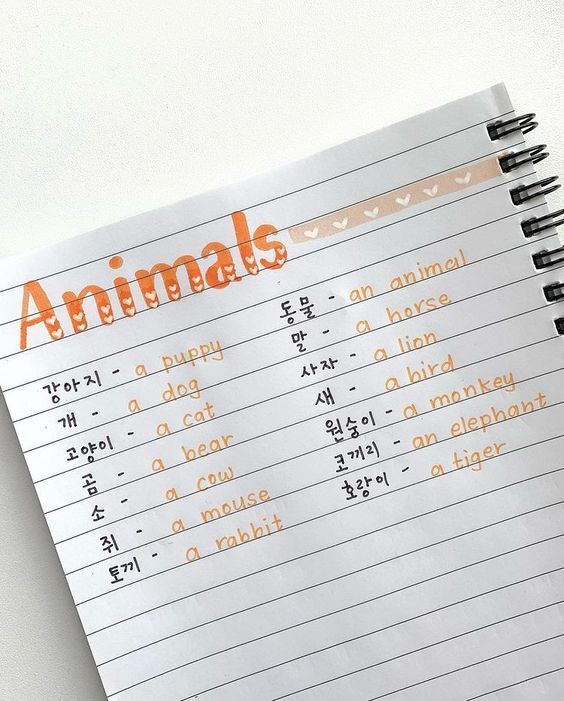 Animals
강아지 - a puppy
개 - a dog
고양이 - a cat
곰 - a bear
소 - a cow
쥐 - a mouse
토끼 - a rabbit
동물 - an animal
말 - a horse
사자 - a lion
새 - a bird
원숭이 - a monkey
코끼리 - an elephant
호랑이 - a tiger